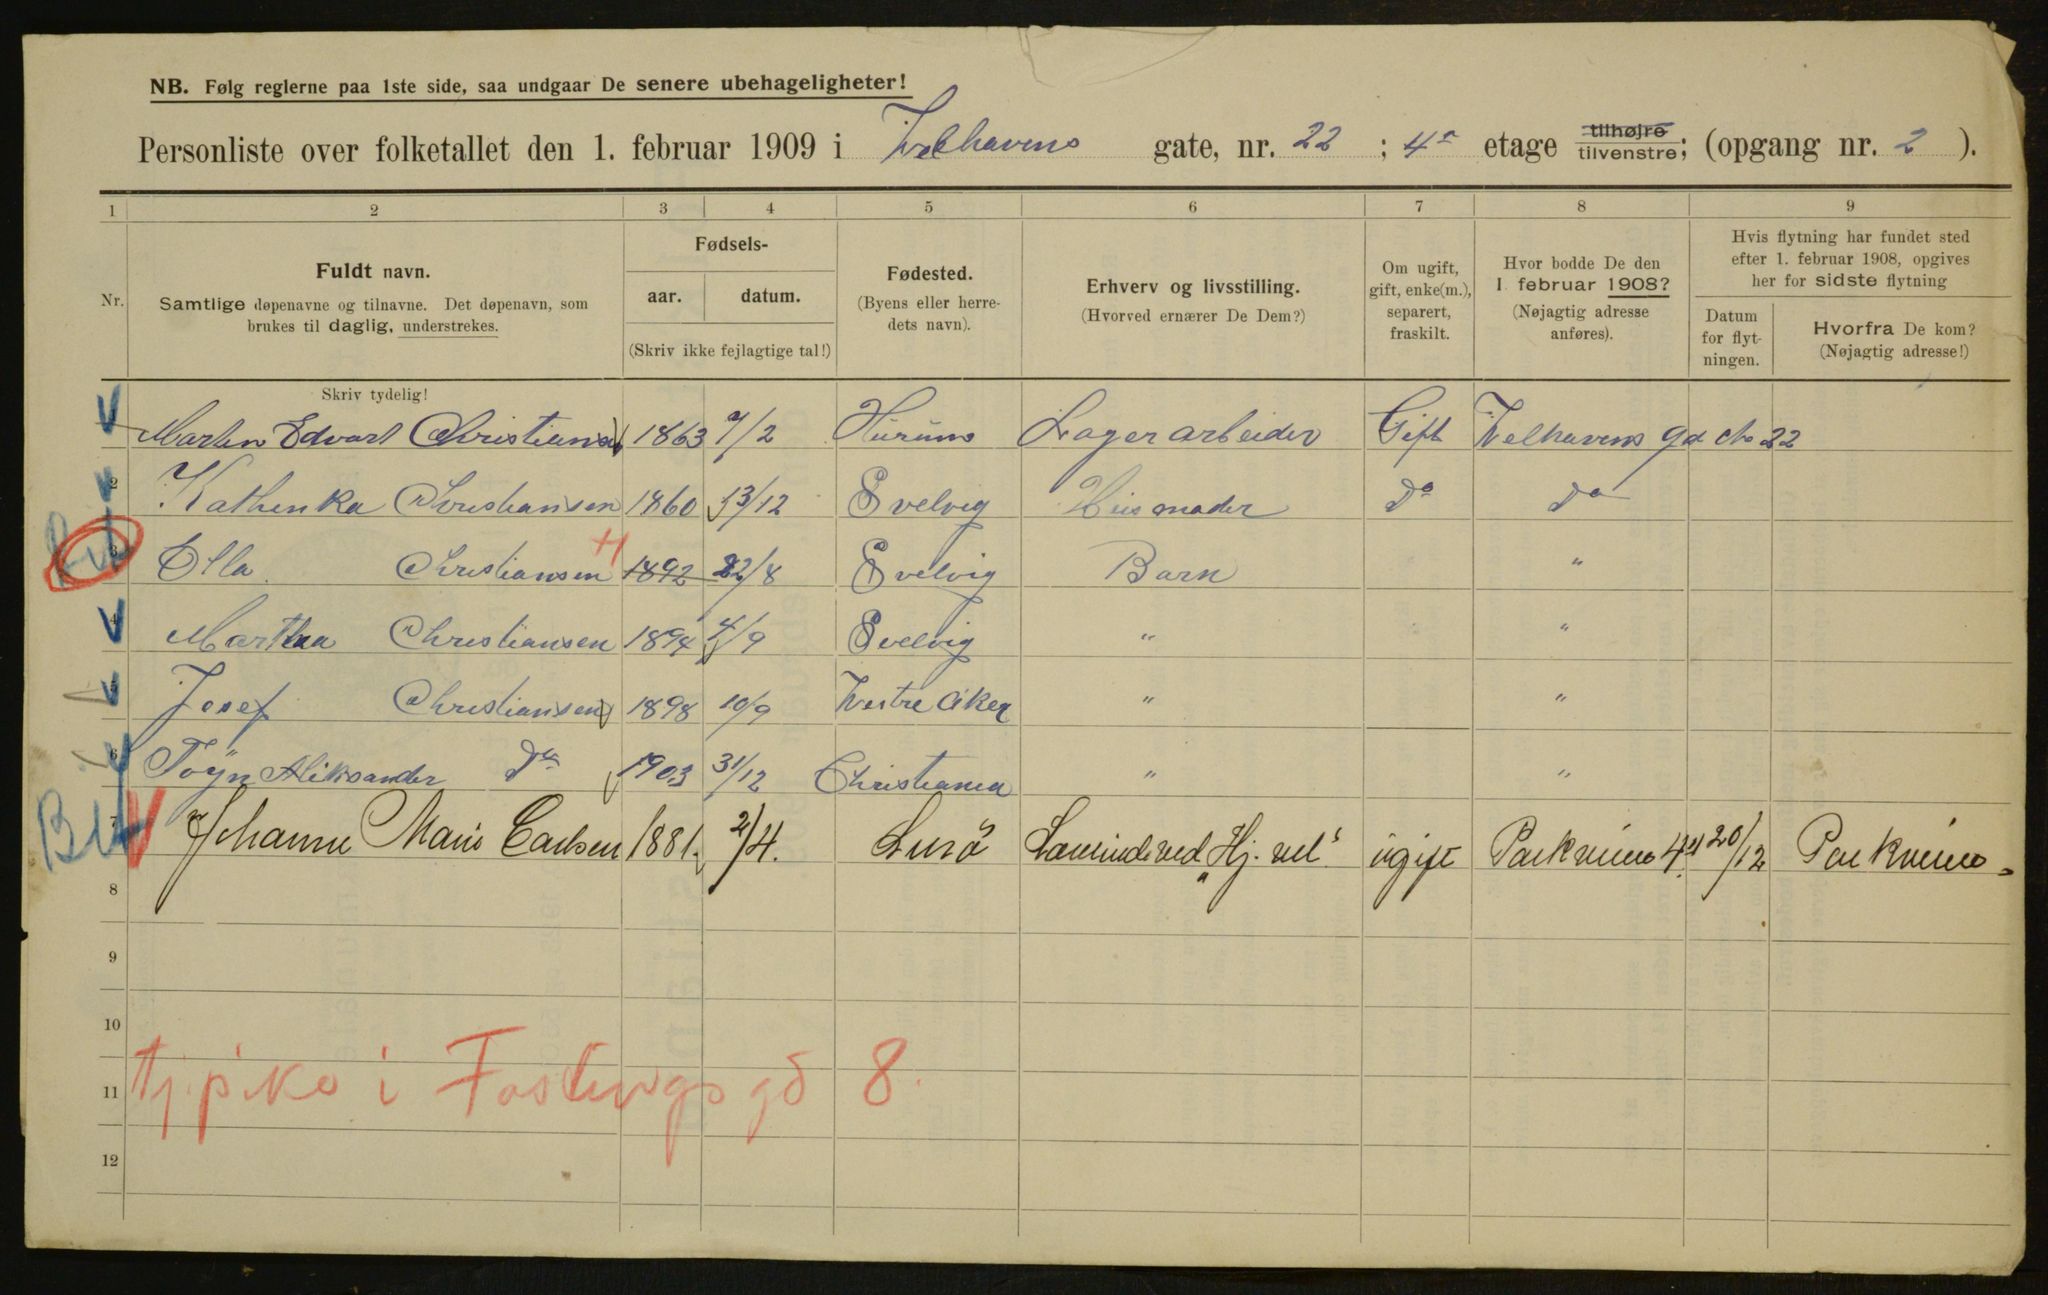 NB. Følg reglerne paa 1ste side, saa undgaar De senere ubehageligheter!
Personliste over folketallet den 1. februar 1909 i Welhavens gate, nr. 22 ; 4de etage tilhøjre tilvenstre; (opgang nr. 2 ).
1 2 3 4 5 6 7 8 9
Nr.
Fuldt navn.
Samtlige døpenavne og tilnavne. Det døpenavn, som
brukes til daglig, understrekes.
Fødsels-
aar. datum.
(Skriv ikke fejlagtige tal!)
Fødested.
(Byens eller herre-
dets navn).
Erhverv og livsstilling.
(Hvorved ernærer De Dem?)
Om ugift,
gift, enke(m.),
separert,
fraskilt.
Hvor bodde De den
1 februar 1908?
(Nøjagtig adresse
anføres).
Hvis flytning har fundet sted
efter 1. februar 1908, opgives
her for sidste flytning
Datum
for flyt-
ningen.
Hvorfra De kom?
(Nøjagtig adresse!)
Skriv tydelig!
Martin Edvart Christiansen 1863 7/2 Hurum Lagerarbeider Gift Welhavens gd No 22
2 Kathinka Christiansen 1860 13/12 Svelvig Husmoder Do Do
3 Ella Christiansen 1892 22/8 Svelvig Barn "
4 Martha Christiansen 1894 4/9 Svelvig " "
5 Josef Christiansen 1898 10/9 Vestre Aker " "
6 Aliksander Do 1903 31/12 Christiania " "
7 Johanne Marie Carlsen 1881. 2/4. Lurö ved ugift Parkveien 4 20/12 Parkveien
8
9
10
11
12
Tj.pike i Fostings gd 8.